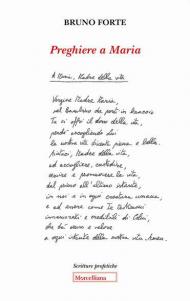 BRUNO FORTE
Preghiere a Maria
A Maria, Madre della vita
Vergine Madre Maria,
nel Bambino che porti in braccio
Tu ci offri il dono della vita,
perché accogliendo Lui
la nostra vita diventi piena e bella.
Aiutaci, Madre della vita,
ad accogliere, custodire,
servire e promuovere la vita,
dal primo all'ultimo istante,
in noi e in ogni creatura umana,
e ad amare come Te
innamorati e di Colui,
che dà senso e valore
a ogni istante della nostra vita. Amen.
Scritture profetiche
Morcelliana